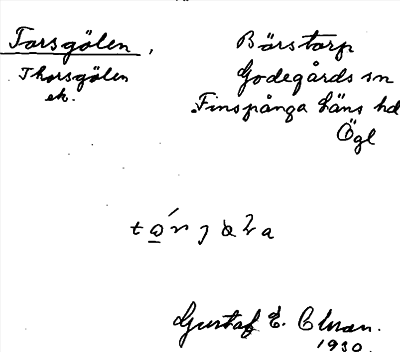 Torsgölen,
Thorsgölen
ek.
Bärstorp
Godegårds sn
Finspånga läns hd
Ögl
Gustaf E.
1930.